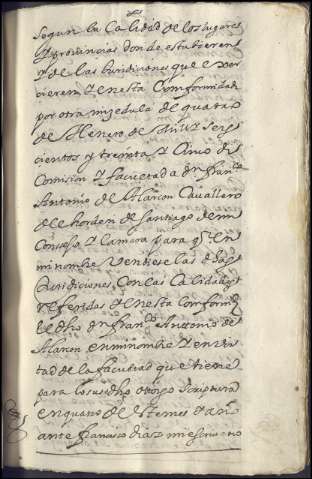 segun la Calidad de los lugares
y provincias donde estubieren
y de las Juridiciones que exer
cieren y en esta Comformidad
por otra mi zedula de quatro
de Henero de seys
cientos y treinta y Cinco di
Comision y facultad a don franco
Antonio de Alarcon Cavallero
de el horden de Santiago de mi
Consejo y Camara para q en
mi nombre vendiese las dhas
Juridiciones Con las Calidades
referidas y en esta Comformd
el dho don franco Antonio de
Alarcon en mi nombre y en vir
tad de la facultad que tiene
para lo susodho otorgo scriptura
en quatro de este mes y año
ante francisco diaz mi scriuano